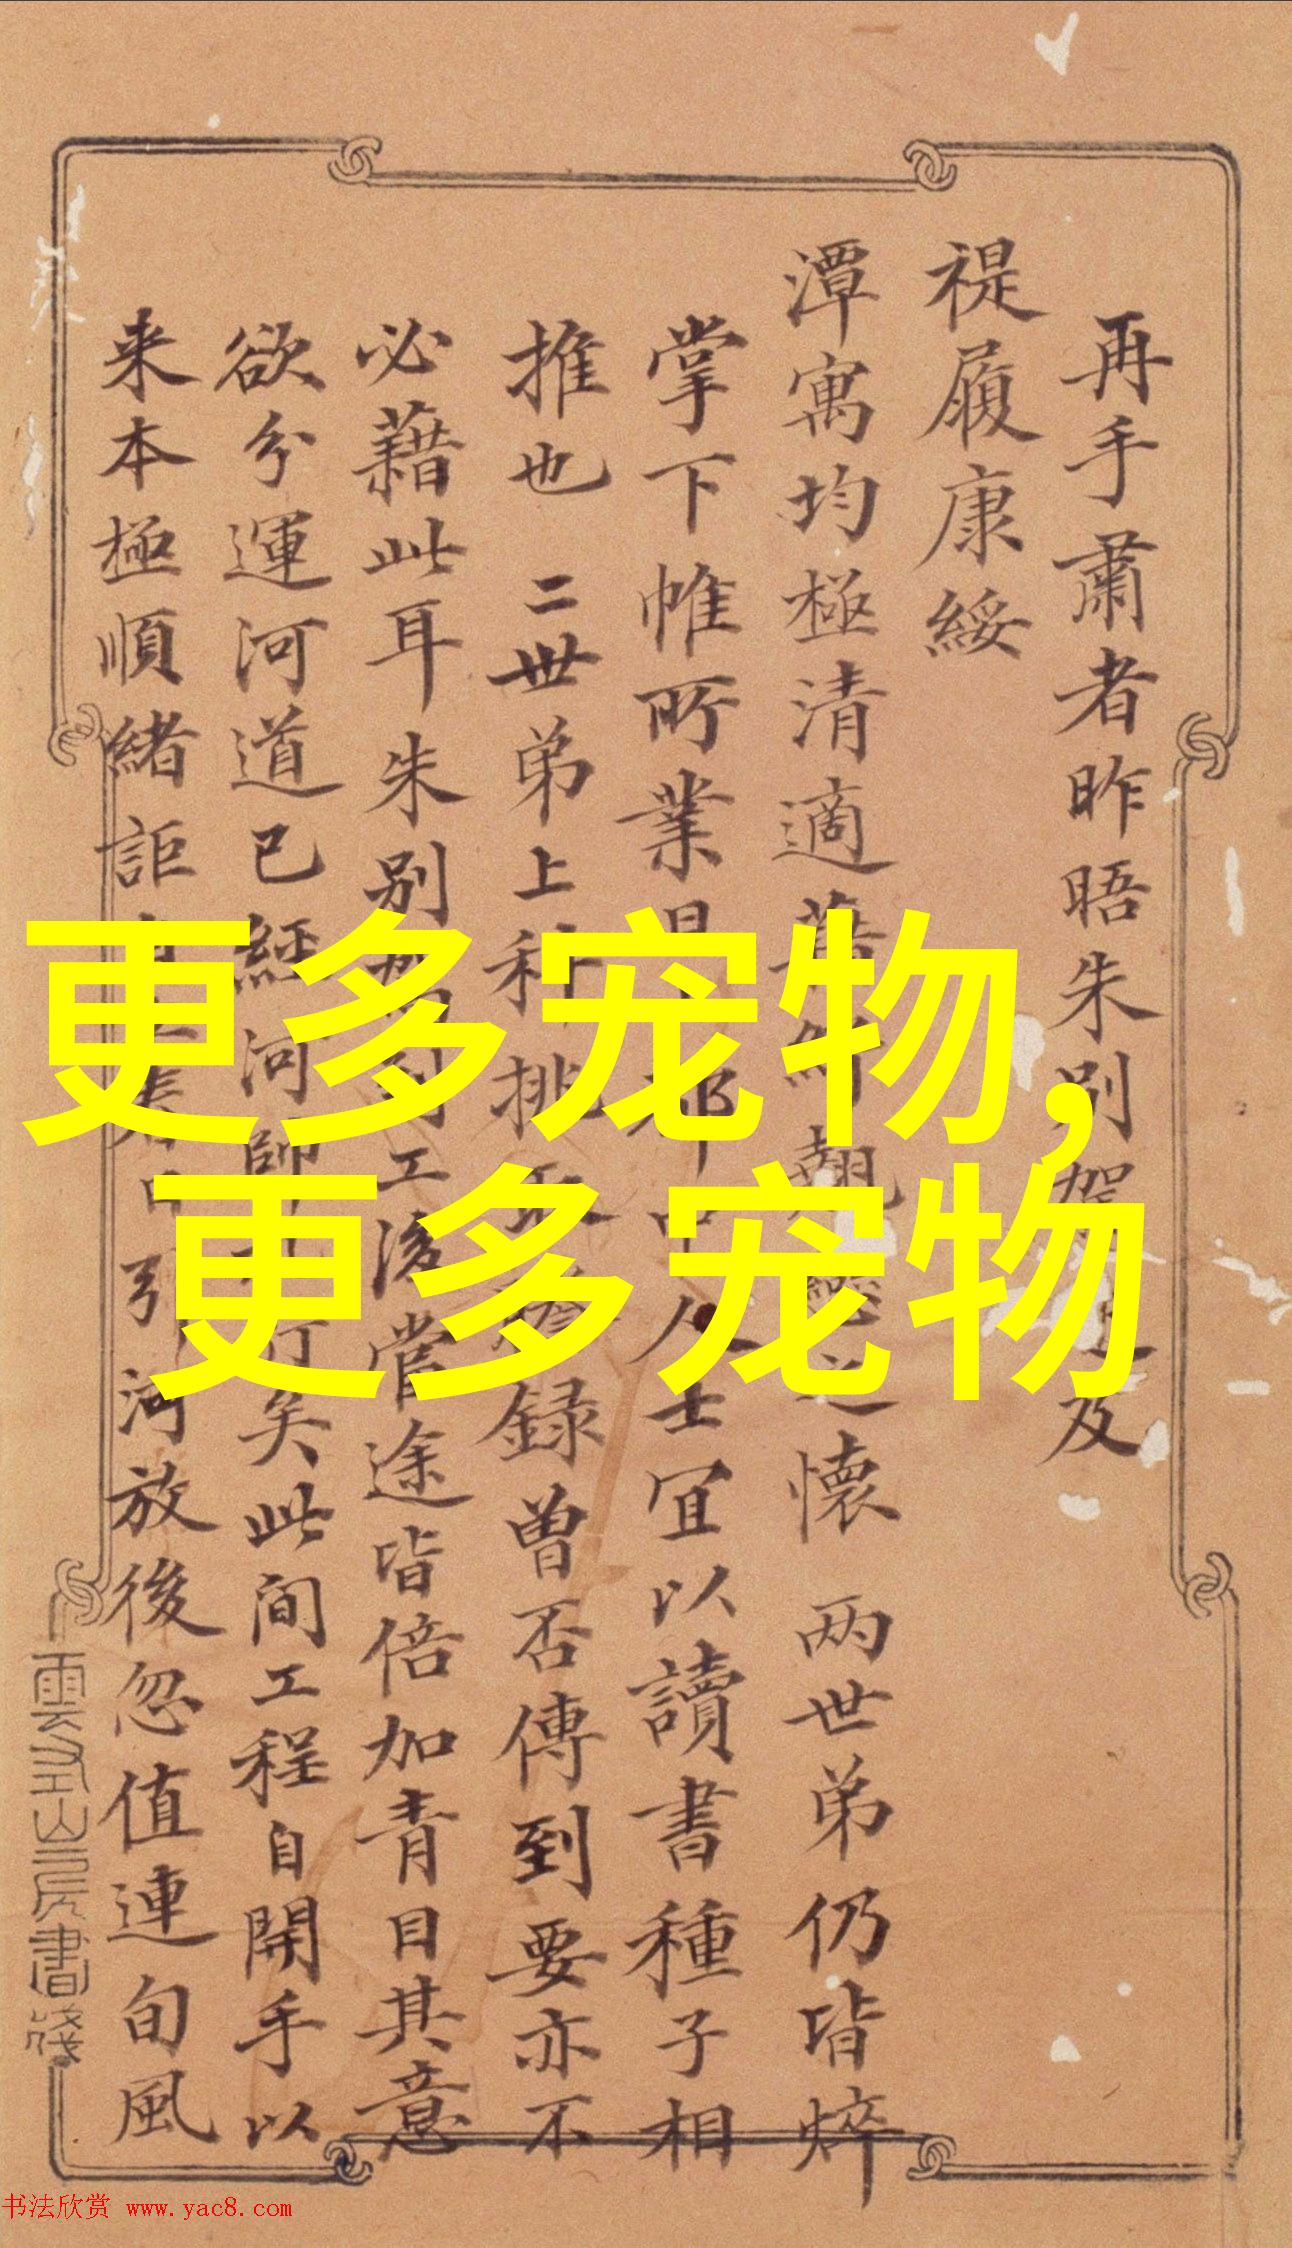 再手肅者昨晤朱別駕 及
禔履康綏
潭寓均極清適 懷 两世弟仍皆焠
掌下帷所業 人士宜以讀書種子相
推也 二世弟上科挑 錄曾否傳到要亦不
必藉此耳朱別 工後當途皆倍加青目其意
欲分運河道已經河帥 行矣此间工程自開手以
来本極順緒詎 引河放後忽值連旬風
更多宠物,
更多宠物
雲 山房書牋
书法欣赏 www.yac8.com